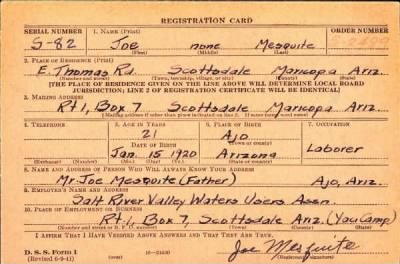 REGISTRATION CARD
SERIAL NUMBER 1. NAME (Print) ORDER NUMBER
S-82 Joe none Mesquite
(First) (Middle) (Last)
2. PLACE OF RESIDENCE (Print)
E. Thomas Rd. Scottsdale Maricopa Ariz.
(Number and street) (Town, township, village, or city) (County) (State)
[THE PLACE OF RESIDENCE GIVEN ON THE LINE ABOVE WILL DETERMINE LOCAL BOARD
JURISDICTION; LINE 2 OF REGISTRATION CERTIFICATE WILL BE IDENTICAL]
3. MAILING ADDRESS
Rt 1, Box 7 Scottsdale Maricopa Ariz.
[Mailing address if other than place indicated on line 2. If same insert word same]
4. TELEPHONE 5. AGE IN YEARS 6. PLACE OF BIRTH 7. OCCUPATION
21 Ajo
DATE OF BIRTH (Town or county) Laborer
Jan. 15 1920 Arizona
(Exchange) (Number) (Mo.) (Day) (Yr.) (State or country)
8. NAME AND ADDRESS OF PERSON WHO WILL ALWAYS KNOW YOUR ADDRESS
Mr. Joe Mesquite (Father) Ajo, Ariz.
9. EMPLOYER'S NAME AND ADDRESS
Salt River Valley Waters Users Assn.
10. PLACE OF EMPLOYMENT OR BUSINESS
Rt. 1, Box 7, Scottsdale Ariz.
(Number and street or R. F. D. number) (Town) (County) (State)
I AFFIRM THAT I HAVE VERIFIED ABOVE ANSWERS AND THAT THEY ARE TRUE.
D. S. S. Form 1
(Revised 6-9-41)
Joe Mesquite